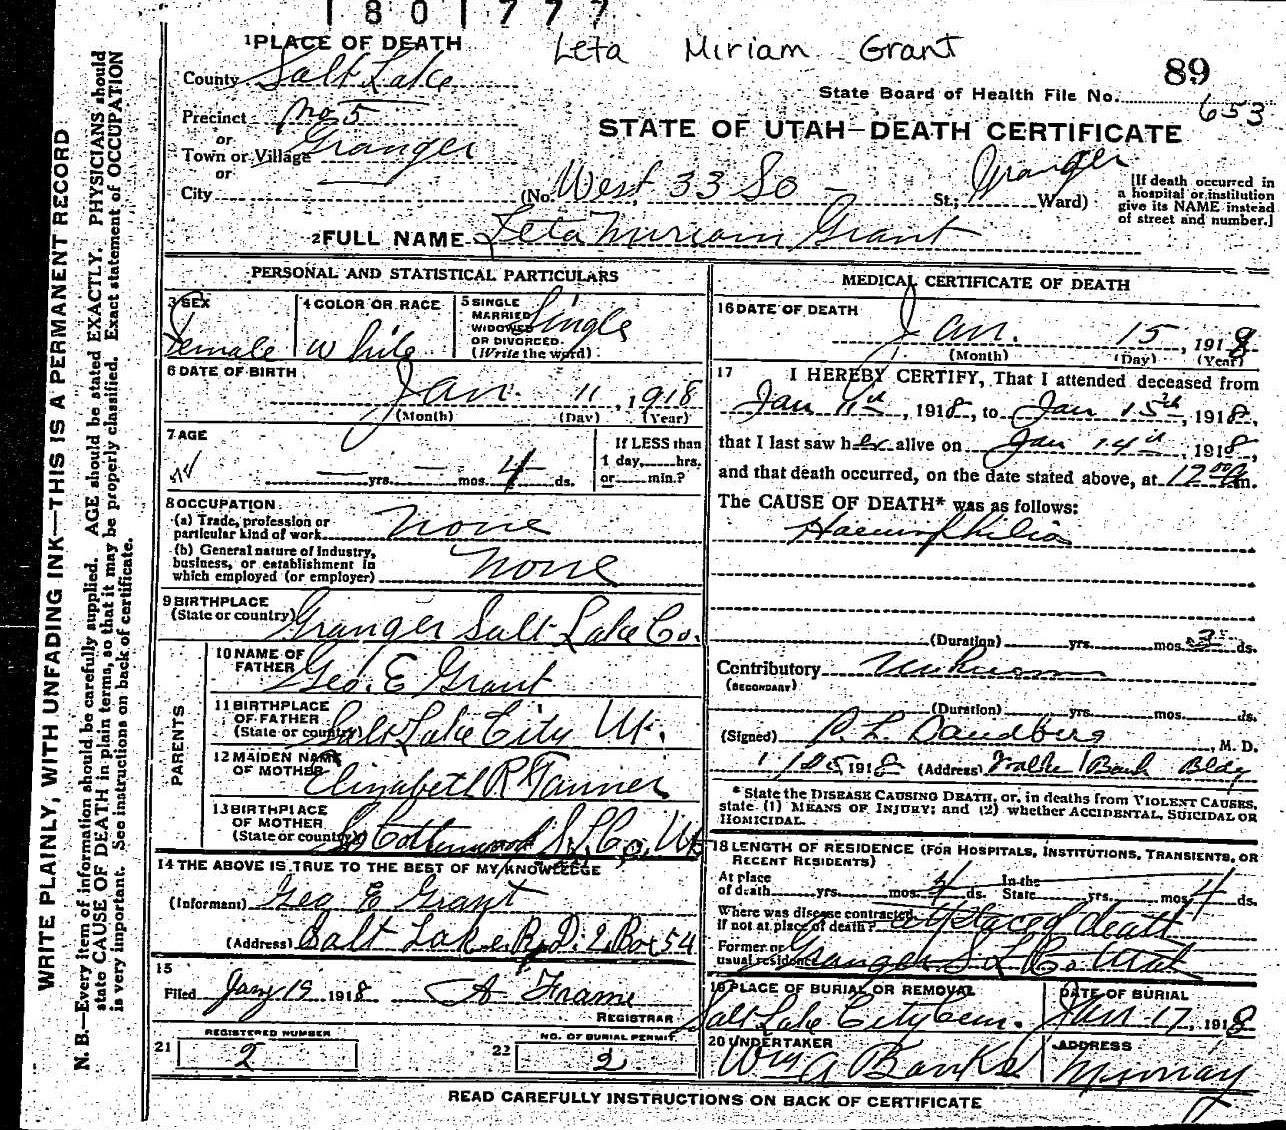 1801777
Leta Miriam Grant
89
1 PLACE OF DEATH
County Salt Lake
State Board of Health File No. 653
Precinct No 5
or
Town or Village Granger
or
City
STATE OF UTAH—DEATH CERTIFICATE
(No. West 33 So - St.; Granger Ward)
[If death occurred in
a hospital or institution
give its NAME instead
of street and number.]
2 FULL NAME Leta Miriam Grant
PERSONAL AND STATISTICAL PARTICULARS
3 SEX
Female
4 COLOR OR RACE
White
5 SINGLE
MARRIED
WIDOWED
OR DIVORCED.
(Write the word)
Single
6 DATE OF BIRTH
Jan. 11, 1918
(Month) (Day) (Year)
7 AGE
— yrs. — mos. 4 ds.
If LESS than
1 day, hrs.
or min.?
8 OCCUPATION
(a) Trade, profession or
particular kind of work None
(b) General nature of Industry,
business, or establishment in
which employed (or employer) None
9 BIRTHPLACE
(State or country) Granger Salt Lake Co.
PARENTS
10 NAME OF
FATHER Geo. E Grant
11 BIRTHPLACE
OF FATHER
(State or country) Salt Lake City Ut.
12 MAIDEN NAME
OF MOTHER Elizabeth R Tanner
13 BIRTHPLACE
OF MOTHER
(State or country) Cottonwood S. L. Co. Ut
14 THE ABOVE IS TRUE TO THE BEST OF MY KNOWLEDGE
(Informant) Geo E Grant
(Address) Salt Lake R.D. 2 Box 54
15
Filed Jany 19 1918 A Frame
REGISTRAR
REGISTERED NUMBER
21 2
NO. OF BURIAL PERMIT
22 2
MEDICAL CERTIFICATE OF DEATH
16 DATE OF DEATH
Jan. 15, 1918
(Month) (Day) (Year)
17 I HEREBY CERTIFY, That I attended deceased from
Jan 11th, 1918, to Jan 15th, 1918,
that I last saw her alive on Jan 14th, 1918,
and that death occurred, on the date stated above, at 12 00 m.
The CAUSE OF DEATH* was as follows:
Haemophilia
(Duration) yrs. mos. ds.
Contributory Unknown
(SECONDARY)
(Duration) yrs. mos. ds.
(Signed) P. L. Dandberg, M. D.
1/25 1918 (Address) Walker Bank Bldg
*State the DISEASE CAUSING DEATH, or, in deaths from VIOLENT CAUSES,
state (1) MEANS OF INJURY; and (2) whether ACCIDENTAL, SUICIDAL OR
HOMICIDAL.
18 LENGTH OF RESIDENCE (FOR HOSPITALS, INSTITUTIONS, TRANSIENTS, OR
RECENT RESIDENTS)
At place
of death yrs. mos. 4 ds.
In the
State yrs. mos. 4 ds.
Where was disease contracted,
if not at place of death? at placed death
Former or
usual residence Granger S L Co. Utah
19 PLACE OF BURIAL OR REMOVAL
Salt Lake City Cem.
DATE OF BURIAL
Jan 17, 1918
20 UNDERTAKER
Wm A Banks
ADDRESS
Murray
READ CAREFULLY INSTRUCTIONS ON BACK OF CERTIFICATE
WRITE PLAINLY, WITH UNFADING INK—THIS IS A PERMANENT RECORD
N. B.—Every item of information should be carefully supplied. AGE should be stated EXACTLY. PHYSICIANS should
state CAUSE OF DEATH in plain terms, so that it may be properly classified. Exact statement of OCCUPATION
is very important. See instructions on back of certificate.